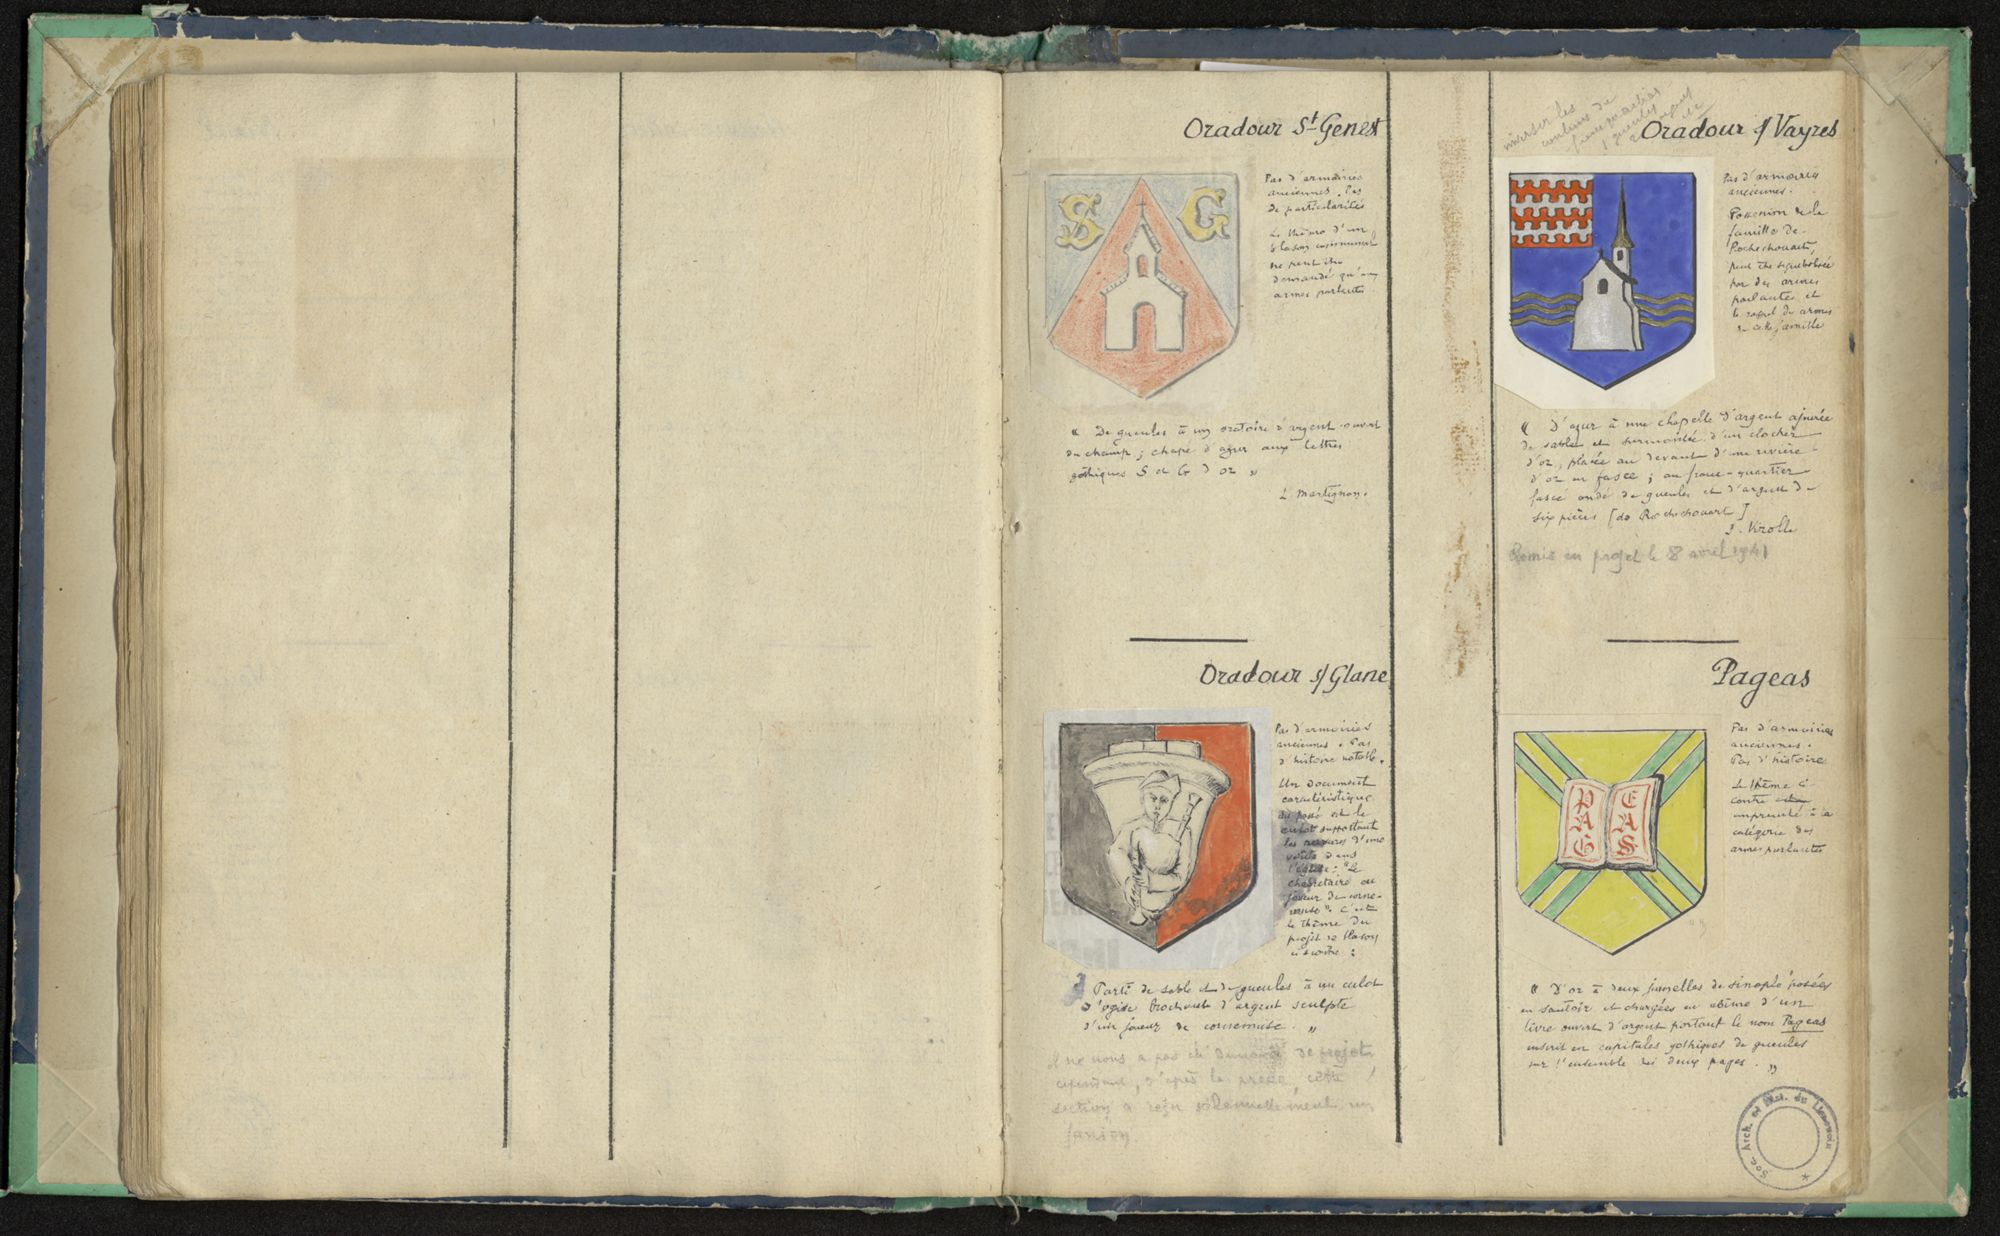 Oradour St Genest
S G
Pas d'armoiries
anciennes. Pas
de particularités
Le thème d'un
blason communal
ne peut être
demandé qu'aux
armes parlantes
« De gueules à un oratoire d'argent ouvert
du champ ; chapé d'azur aux lettres
gothiques S et G d'or »
L. Martignon.
Oradour s/ Vayres
inverser les
Pas d'armoiries
anciennes.
Possession de la
famille de
Rochechouart,
peut être symbolisée
par des armes
parlantes et
le rappel des armes
de cette famille
« D'azur à une chapelle d'argent ajourée
de sable et surmontée d'un clocher
d'or, placée au devant d'une rivière
d'or en fasce ; au franc-quartier
fascé ondé de gueules et d'argent de
six pièces [de Rochechouart]
J. Krolle
Remis en projet le 8 avril 1941
Oradour s/ Glane
Pas d'armoiries
anciennes. Pas
d'histoire notable.
Un document
caractéristique
du passé est le
culot supportant
les nervures d'une
voûte dans
l'église : "Le
chabretaire ou
joueur de corne-
muse". C'est
le thème du
projet de blason
ci-contre :
« Parti de sable et de gueules à un culot
d'ogive brochant d'argent sculpté
d'un joueur de cornemuse. »
Il ne nous a pas été demandé de projet
cependant, d'après la presse, cette
section a reçu solennellement un
fanion
Pageas
PAG EAS
Pas d'armoiries
anciennes.
Pas d'histoire
Le thème ci-
contre
emprunté à la
catégorie des
armes parlantes
« D'or à deux jumelles de sinople posées
en sautoir et chargées en abîme d'un
livre ouvert d'argent portant le nom Pageas
inscrit en capitales gothiques de gueules
sur l'ensemble des deux pages. »
Soc. Arch. et Hist. du Limousin